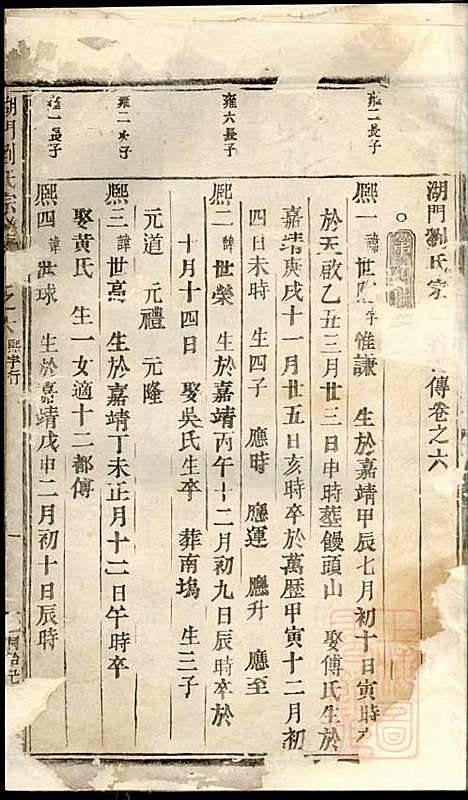 湖門劉氏宗 傳卷之六
雍二長子
熙一 諱世 字惟謙 生於嘉靖甲辰七月初十日寅時卒
於天啟乙丑三月廿三日申時塟饅頭山 娶傅氏生於
嘉靖庚戌十一月廿五日亥時卒於萬歷甲寅十二月初
四日未時 生四子 應時 應運 應升 應至
雍六長子
熙二 諱世榮 生於嘉靖丙午十二月初九日辰時卒於
十月十四日 娶吳氏生卒 葬南塢 生三子
元道 元禮 元隆
雍二次子
熙三 諱世 生於嘉靖丁未正月十二日午時卒
娶黃氏 生一女適十二都傅
雍一長子
熙四 諱世球 生於嘉靖戊申二月初十日辰時
湖門劉氏宗譜 之六 熙字行 一